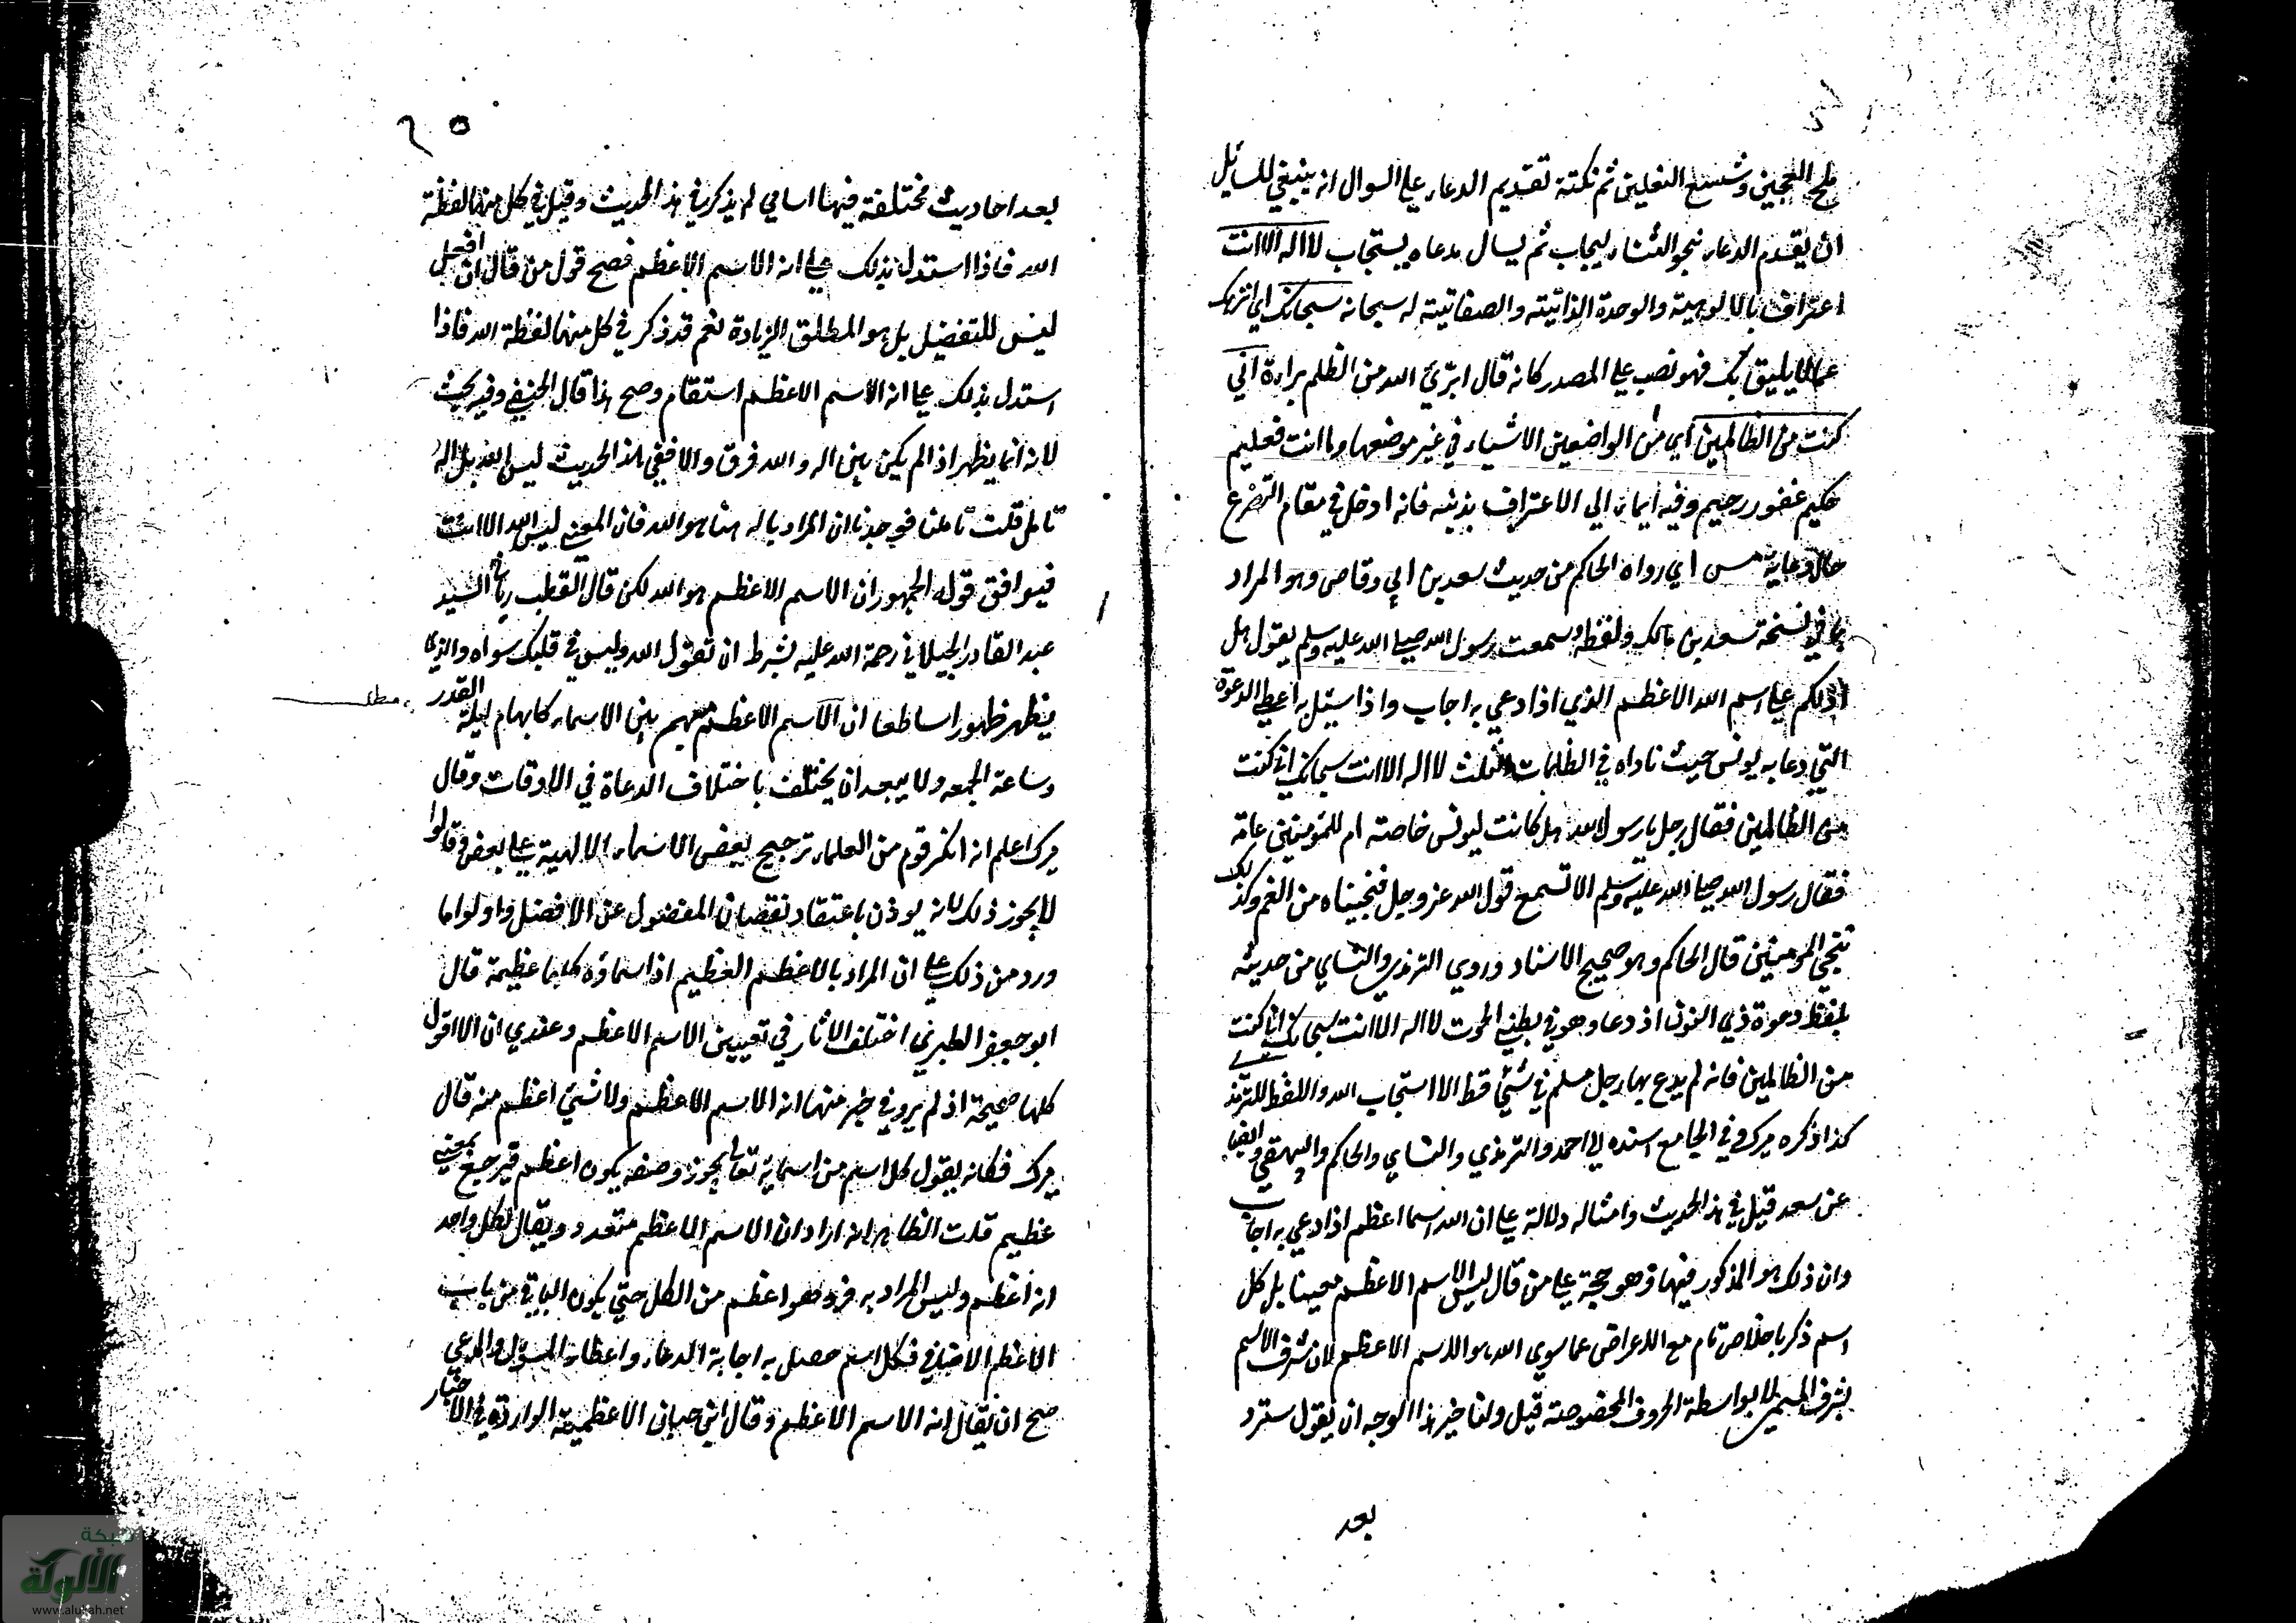 ملح العجين وشسع النعلين ثم نكتة تقديم الدعاء علي السوال انه ينبغي للسائل
ان يقدم الدعاء نحو الثناء ليجاب ثم يسال مدعاه يستجاب لا اله الا انت
اعتراف بالالوهية والوحدة الذاتية والصفاتية له سبحانه سبحانك اي انزهك
عما لا يليق بك فهو نصب علي المصدر كانه قال ابرئ الله من الظلم براءة اني
كنت من الظالمين اي من الواضعين الاشياء في غير موضعها وما انت فعليم
حكيم غفور رحيم وفيه ايماء الي الاعتراف بذنبه فانه ادخل في مقام التضرع
حال دعايه مس اي رواه الحاكم من حديث سعد بن ابي وقاص وهو المراد
بما في نسخة سعد بن مالك ولفظه سمعت رسول الله صلي الله عليه وسلم يقول هل
ادلكم علي اسم الله الاعظم الذي اذا دعي به اجاب واذا سئل به اعطي الدعوة
التي دعا به يونس حيث ناداه في الظلمات الثلث لا اله الا انت سبحانك اني كنت
من الظالمين فقال رجل يا رسول الله هل كانت ليونس خاصة ام للمؤمنين عامة
فقال رسول الله صلي الله عليه وسلم الا تسمع قول الله عز وجل فنجيناه من الغم وكذلك
ننجي المومنين قال الحاكم وهو صحيح الاسناد وروي الترمذي والنساي من حديثه
بلفظ دعوة ذي النون اذ دعا وهو في بطن الحوت لا اله الا انت سبحانك اني كنت
من الظالمين فانه لم يدع بها رجل مسلم في شئ قط الا استجاب الله واللفظ للترمذي
كذا ذكره ميرك وفي الجامع اسنده الي احمد والترمذي والنساي والحاكم والبيهقي والضيا
عن سعد قيل في هذا الحديث وامثاله دلالة علي ان الله اسما اعظم اذا دعي به اجاب
وان ذلك هو المذكور فيها وهو حجة علي من قال ليس الاسم الاعظم معينا بل كل
اسم ذكر باخلاص تام مع الاعراض عما سوي الله هو الاسم الاعظم لان شرف الاسم
بشرف المسمي لا بواسطة الحروف المخصوصة قيل ولنا خير هذا الوجه ان يقول سترد
بعد
٢٥
بعد احاديث مختلفة فيها اسامي لم يذكر في هذا الحديث وقيل في كل منها لفظة
الله فاذا استدل بذلك علي انه الاسم الاعظم فصح قول من قال ان افعل
ليس للتفضيل بل هو المطلق الزيادة نعم قد ذكر في كل منها لفظة الله فاذا
استدل بذلك علي انه الاسم الاعظم استقام وصح هذا قال الحنفي وفيه بحث
لانه انما يظهر اذا لم يكن بين اله والله فرق والا ففي هذا الحديث ليس الله بل اله
تامل قلت تاملنا فوجدنا ان المراد باله هنا هو الله فان المعني ليس الله الا انت
فيوافق قول الجمهور ان الاسم الاعظم هو الله لكن قال القطب رباني السيد
عبد القادر الجيلاني رحمة الله عليه بشرط ان تقول الله وليس في قلبك سواه والذي
مطلب
يظهر ظهورا ساطعا ان الاسم الاعظم مبهم بين الاسماء كابهام ليلة القدر
وساعة الجمعه ولا يبعد ان يختلف باختلاف الدعاة في الاوقات وقال
ميرك اعلم انه انكر قوم من العلماء ترجيح بعض الاسماء الالهية علي بعض وقالوا
لا يجوز ذلك لانه يوذن باعتقاد نقصان المفضول عن الافضل واولوا ما
ورد من ذلك علي ان المراد بالاعظم العظيم اذ اسماؤه كلها عظيمة قال
ابو جعفر الطبري اختلف الاثار في تعيين الاسم الاعظم وعندي ان الاقول
كلها صحيحة اذ لم يرو في خبر منها انه الاسم الاعظم ولا شئ اعظم منه قال
ميرك فكانه يقول كل اسم من اسمايه تعالي يجوز وصفه بكونه اعظم فيرجع بمعني
عظيم قلت الظاهر انه اراد ان الاسم الاعظم متعدد ويقال لكل واحد
انه اعظم وليس المراد به فرد هو اعظم من الكل حتي يكون الباقي من باب
الاعظم الاضافي فكل اسم حصل به اجابة الدعاء واعطاء المسؤل والمدعي
صح ان يقال انه الاسم الاعظم وقال ابن حبان الاعظمية الواردة في الاخبار
شبكة
الألوكة
www.alukah.net